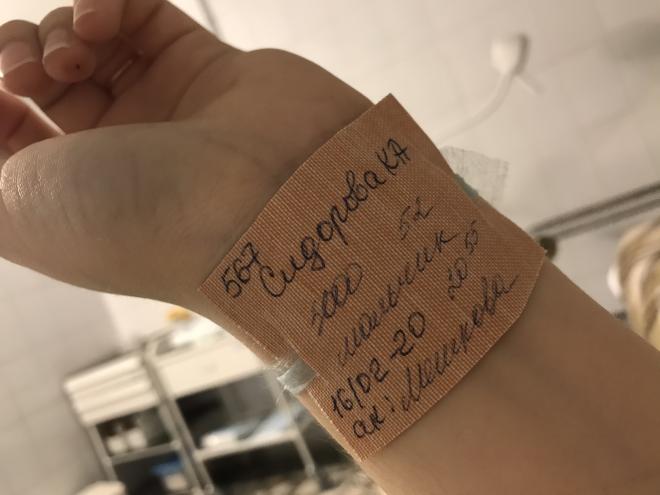 567 Сидорова КА
3000 52
мальчик
16/02-20 20 55
ак: Мешкова